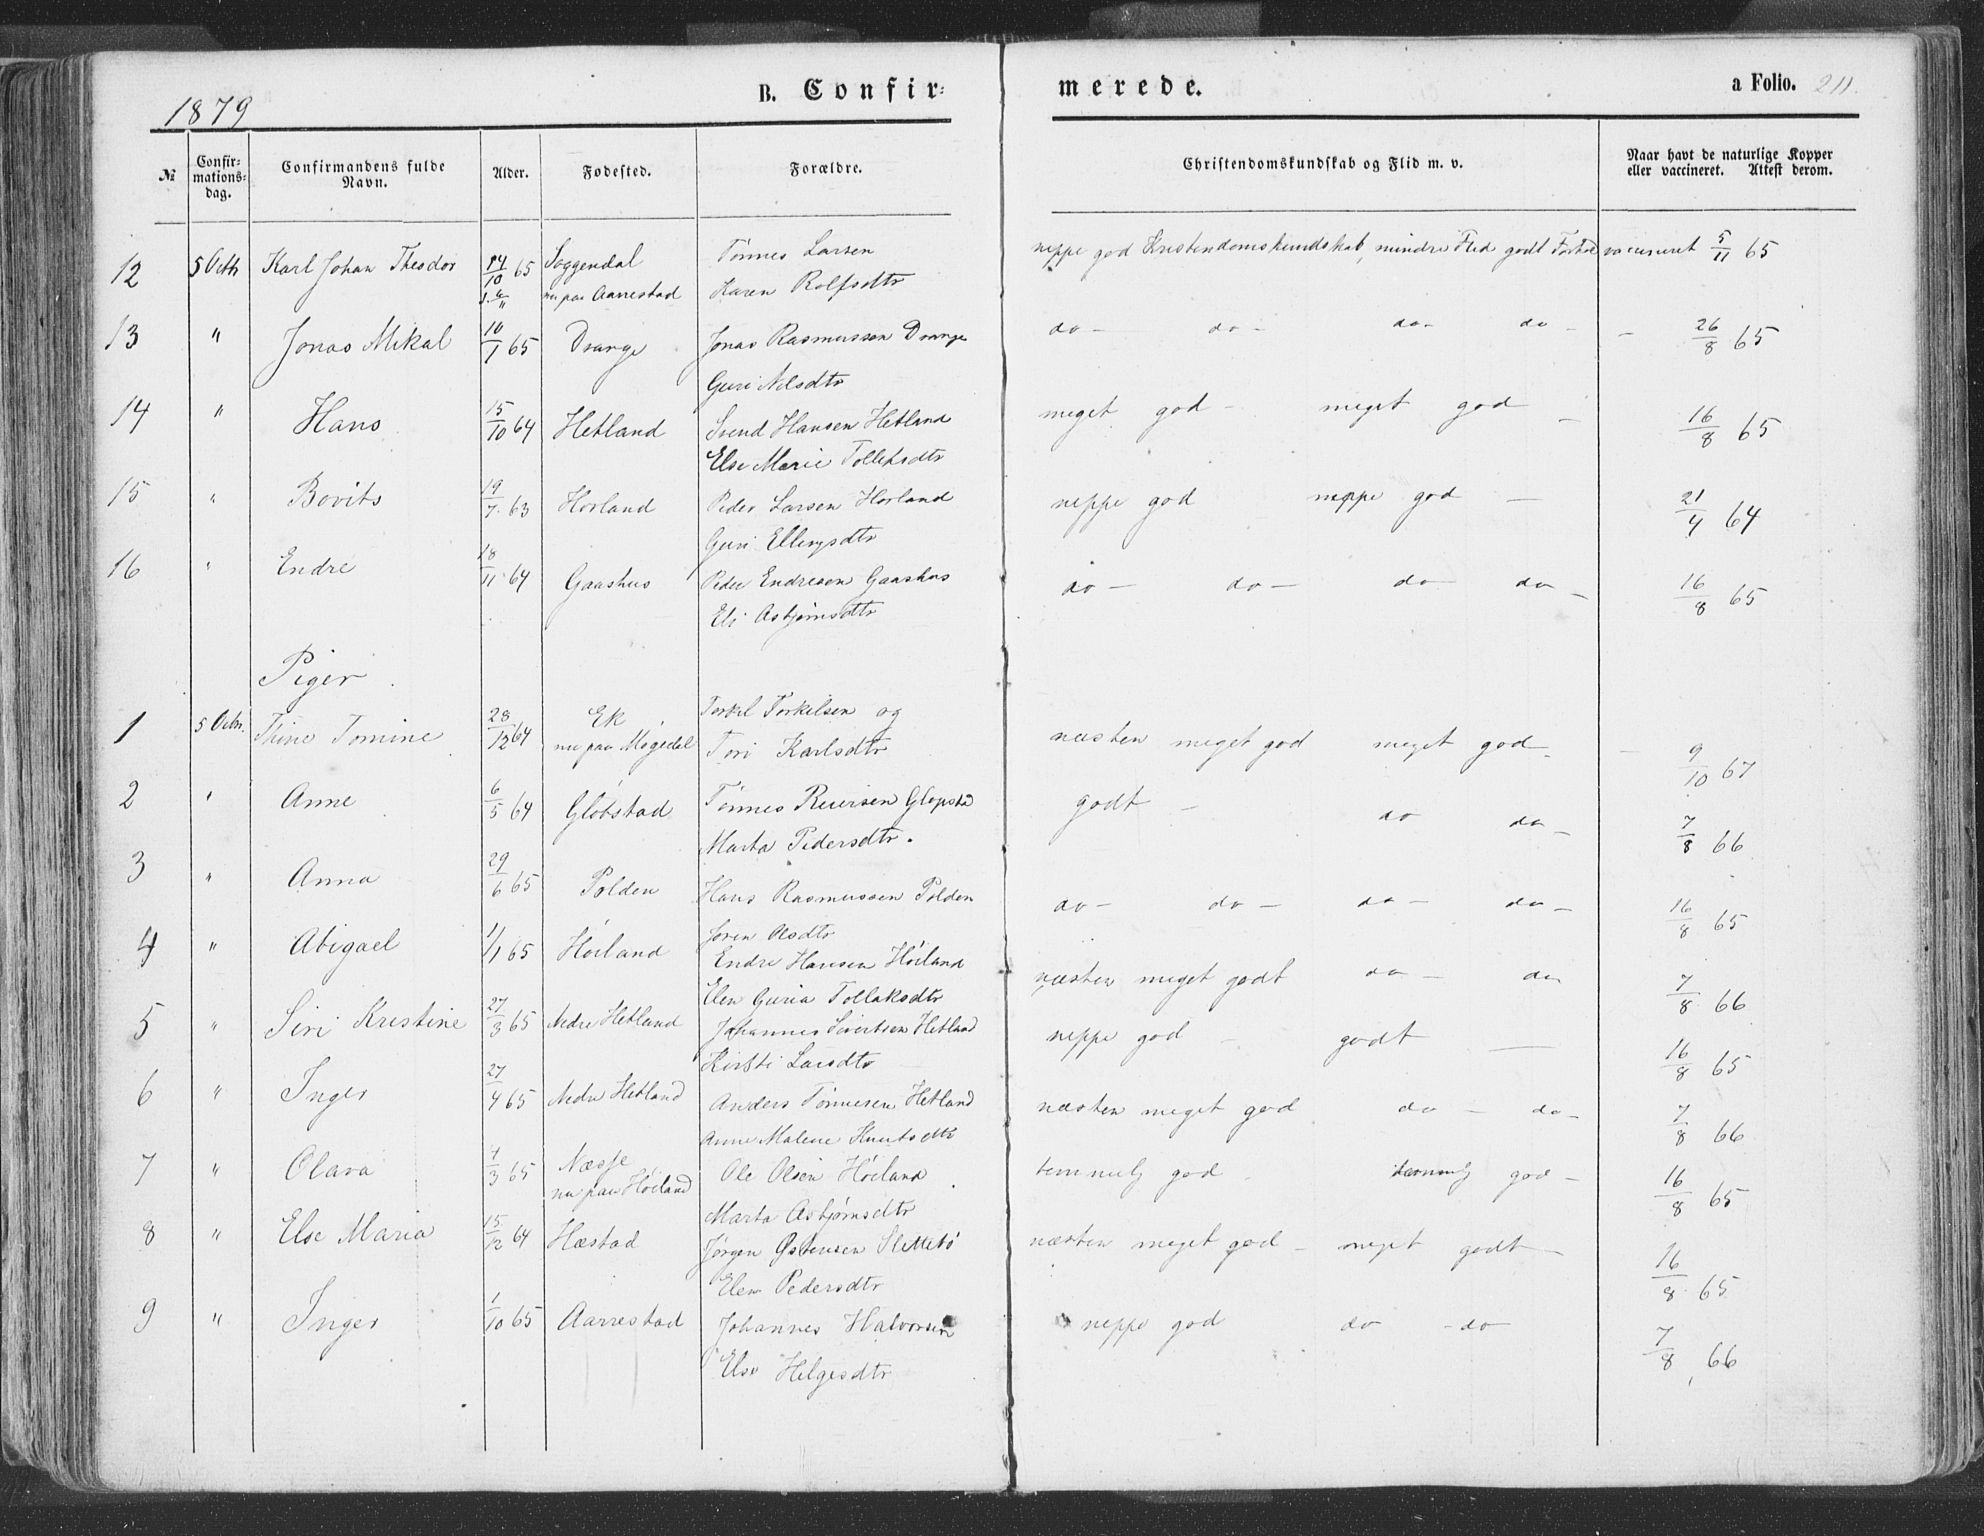 1879
B. Confir=
merede.
a Folio. 211.
№
Confir=
mations=
dag.
Confirmandens fulde
Navn.
Alder.
Fødested.
Forældre.
Christendomskundskab og Flid m. v.
Naar havt de naturlige Kopper
eller vaccineret. Attest derom.
12 5 Octb Karl Johan Theodor 14/10 65 Soggendal Tønnes Larsen neppe god Kristendomskundskab, mindre Flid godt Forhol vaccineret 5/11 65
nu paa Aarrestad Karen Rolfsdtr
13 " Jonas Mikal 10/1 65 Drange Jonas Rasmussen Drange do - do - do - do - - 26/8 65
Guri Nilsdtr
14 " Hans 15/10 64 Hetland Svend Hansen Hetland meget god - meget god - 16/8 65
Else Marie Tollefsdtr
15 " Bovits 19/7 63 Horland Peder Larsen Horland neppe god neppe god - 21/4 64
Guri Ellingsdtr
16 " Endre 18/11 64 Gaashus Peder Endresen Gaashus do - do - do do - 16/8 65
Eli Asbjørnsdtr
Piger.
1 5 Octbr. Thine Tomine 28/12 64 Ek Torkel Torkelsen og
nu paa Mogedal Tori Karlsdtr næsten meget god meget god - - 9/10 67
2 " Anne 6/5 64 Globstad Tønnes Reiersen Glopsta godt - do do - 7/8 66
Marta Pedersdtr.
3 " Anna 29/6 65 Polden Hans Rasmussen Polden do - do - do - do - 16/8 65
Joren Olsdtr
4 " Abigael 1/1 65 Høiland Endre Hansen Høiland næsten meget godt do - do 7/8 66
Elen Guria Tollaksdtr
5 " Siri Kristine 27/3 65 Nedre Hetland Johannes Sivertsen Hetland neppe god - godt - 16/8 65
Kirsti Larsdtr
6 " Inger 27/4 65 Nedre Hetland Anders Tønnesen Hetland næsten meget god do - do - 7/8 66
Anne Malene Knutsdtr
7 " Olava 4/3 65 Næsse Ole Olsen Høiland temmelig god - temmelig god - 16/8 65
nu paa Høiland
Marta Asbjørnsdtr
8 " Else Maria 15/12 64 Hæstad Jørgen Østensen Slettebø næsten meget god - meget godt - 16/8 65
Elen Pedersdtr
9 " Inger 1/10 65 Aarrestad Johannes Halvorsen neppe god do - do 7/8 66
Else Helgesdtr